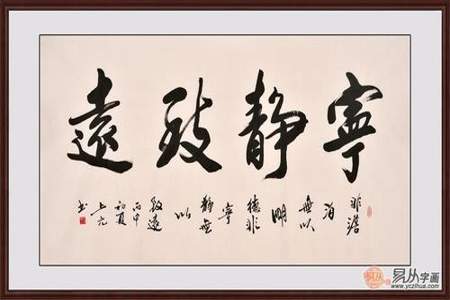 寧靜致遠
非澹泊無以明德非寧靜無以致遠
丙申初夏
易从字画
www.yczihua.com